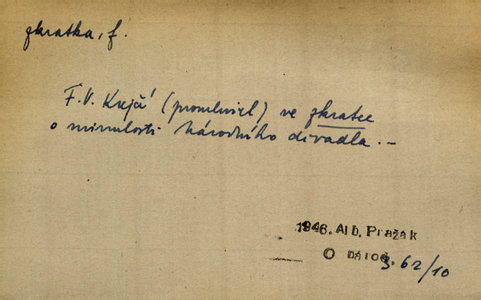 zkratka, f.
F. V. Krejčí (promluvil) ve zkratce
o minulosti Národního divadla. –
1946. Alb. Pražák
O národ. 3. 62/10